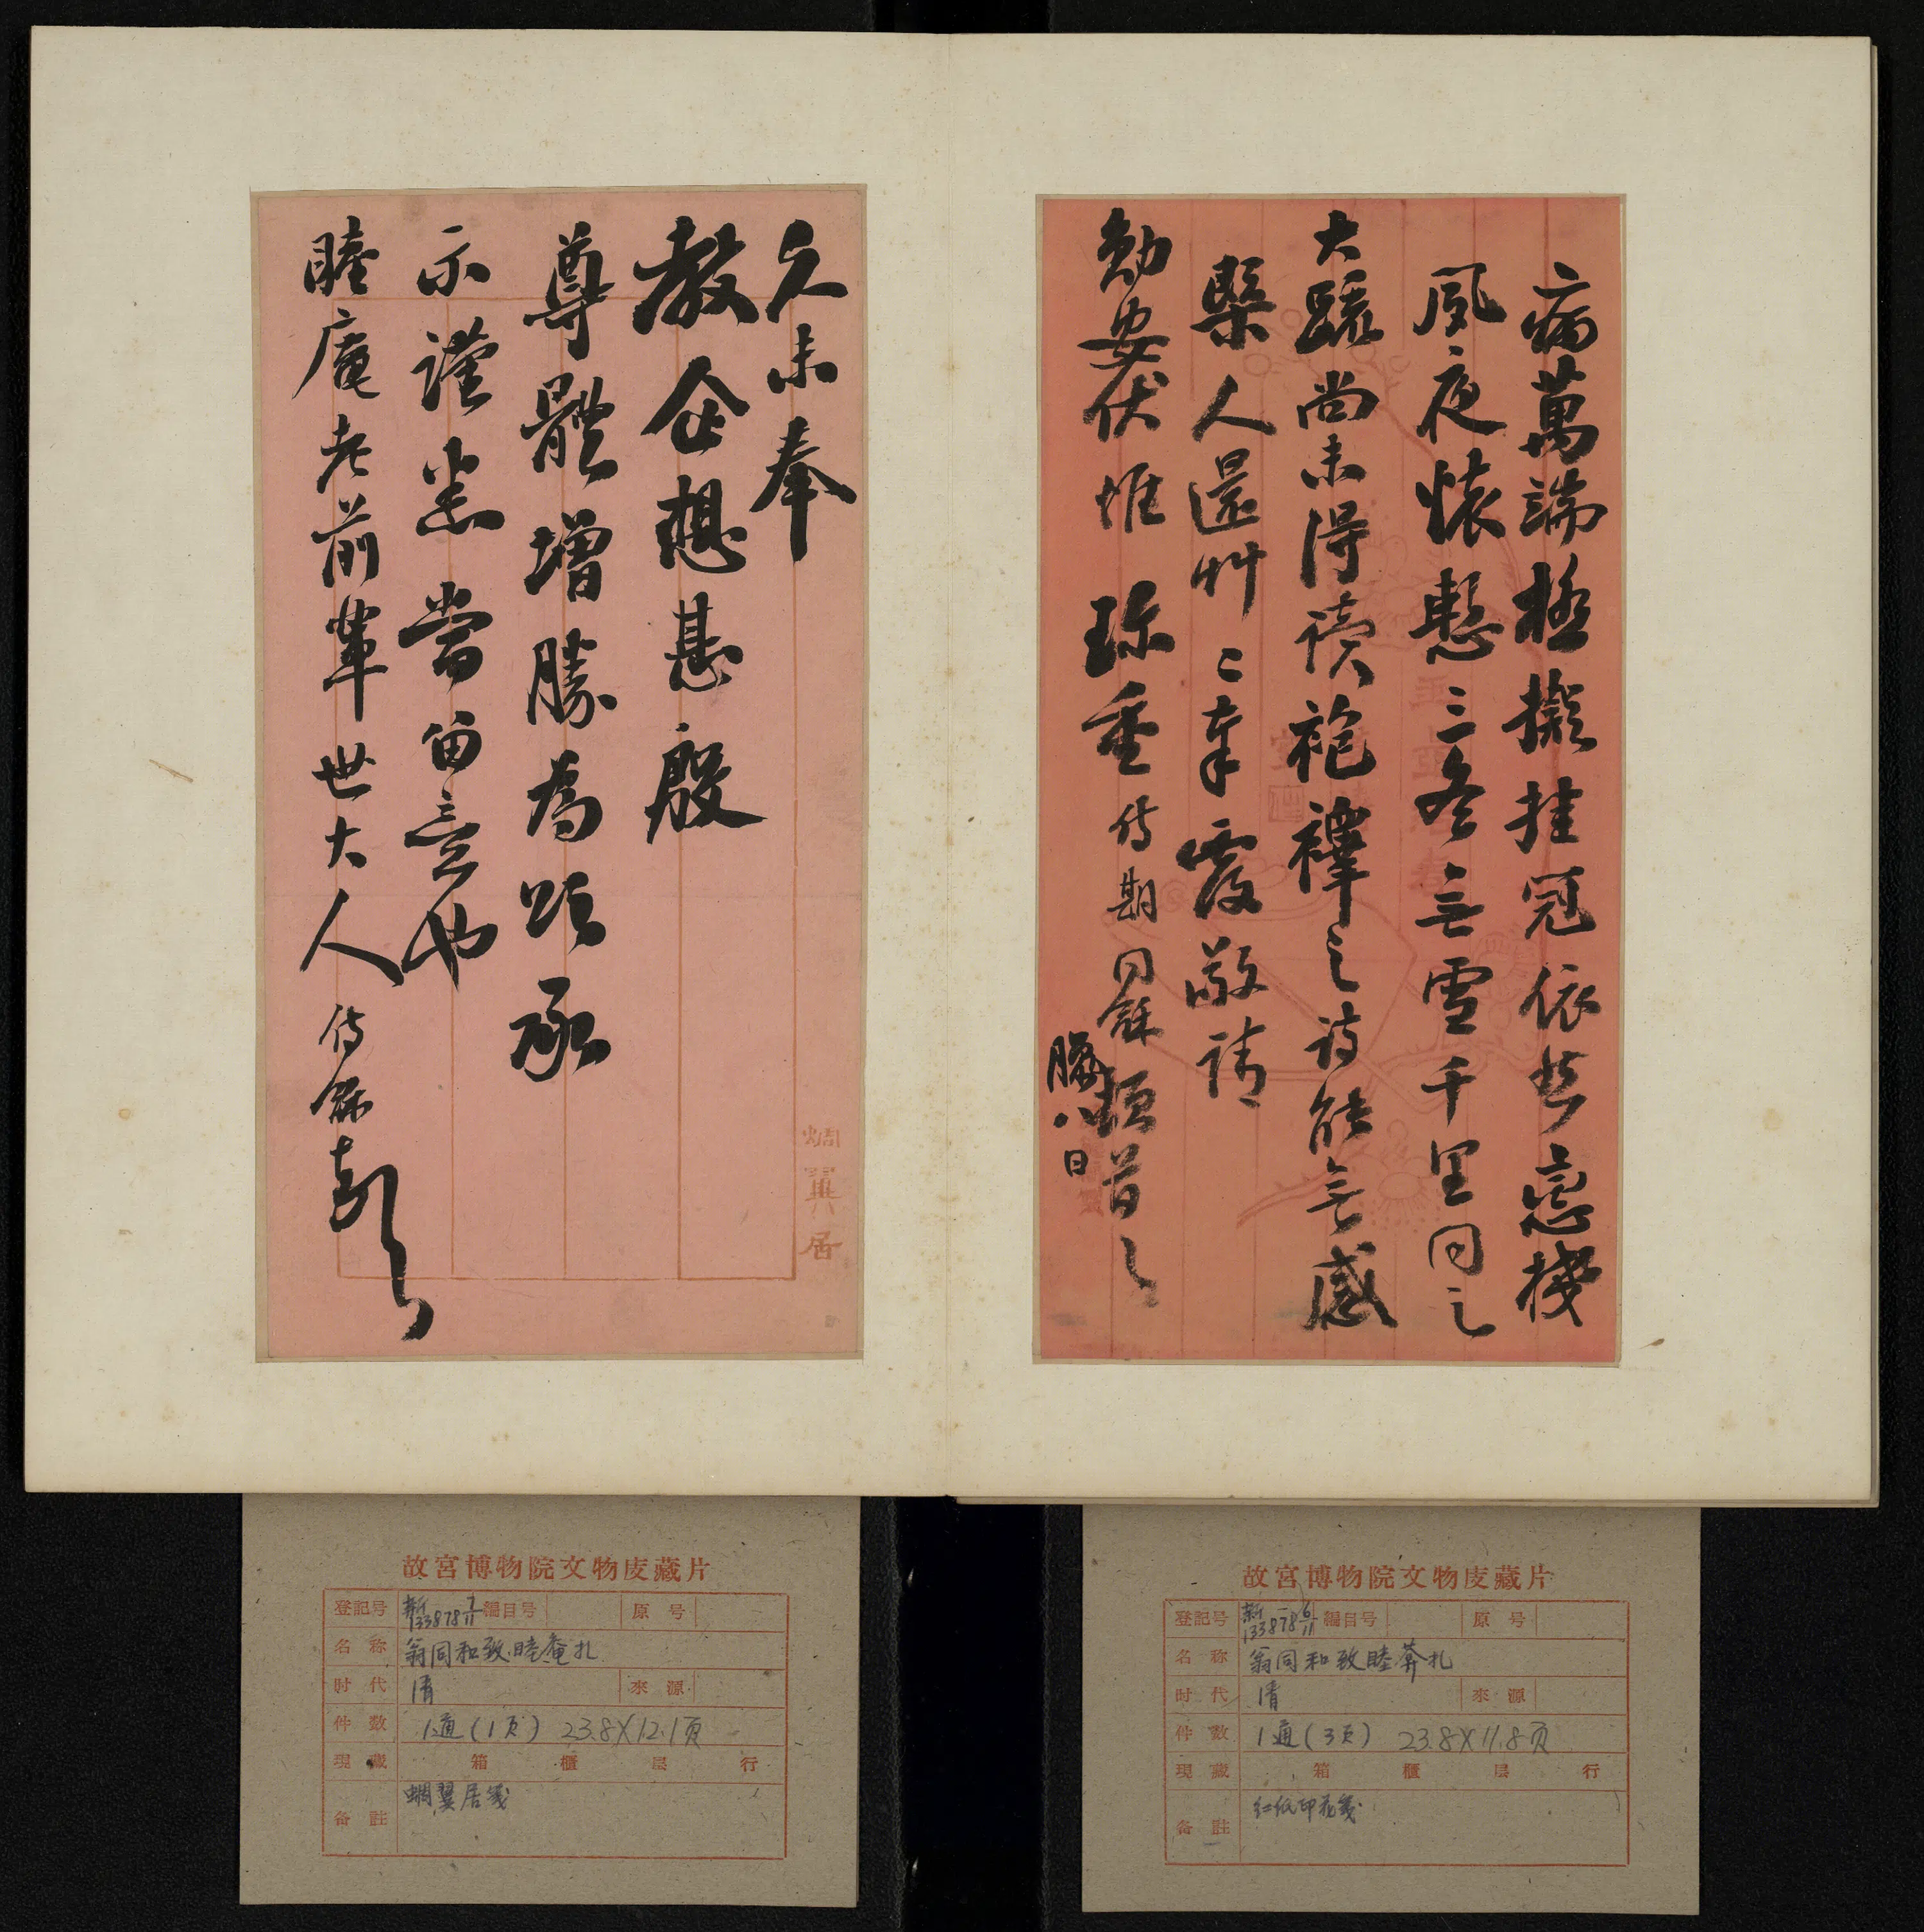 二病萬端極擬挂冠依然戀棧
夙夜懷慙三冬無雪千里同之
大疏尚未得讀袍襗之詩能無感
槩人還艸二奉覆敬請
勛安伏惟珍重侍期同龢頓首
臘八日
久未奉
教企想甚殷
尊體增勝為頌承
示謹悉當留意也
睦庵老前輩世大人侍龢頓首
蜩翼居
故宮博物院文物庋藏片
登記号 新133878 6/11 編目号 原号
名称 翁同和致睦葊札
时代 清 來源
件数 1通(3页) 23.8X11.8页
現藏 箱 櫃 层 行
备註 红纸印花笺
故宮博物院文物庋藏片
登記号 新133878 7/11 編目号 原号
名称 翁同和致睦庵札
时代 清 來源
件数 1通(1页) 23.8X12.1页
現藏 箱 櫃 层 行
备註 蜩翼居笺